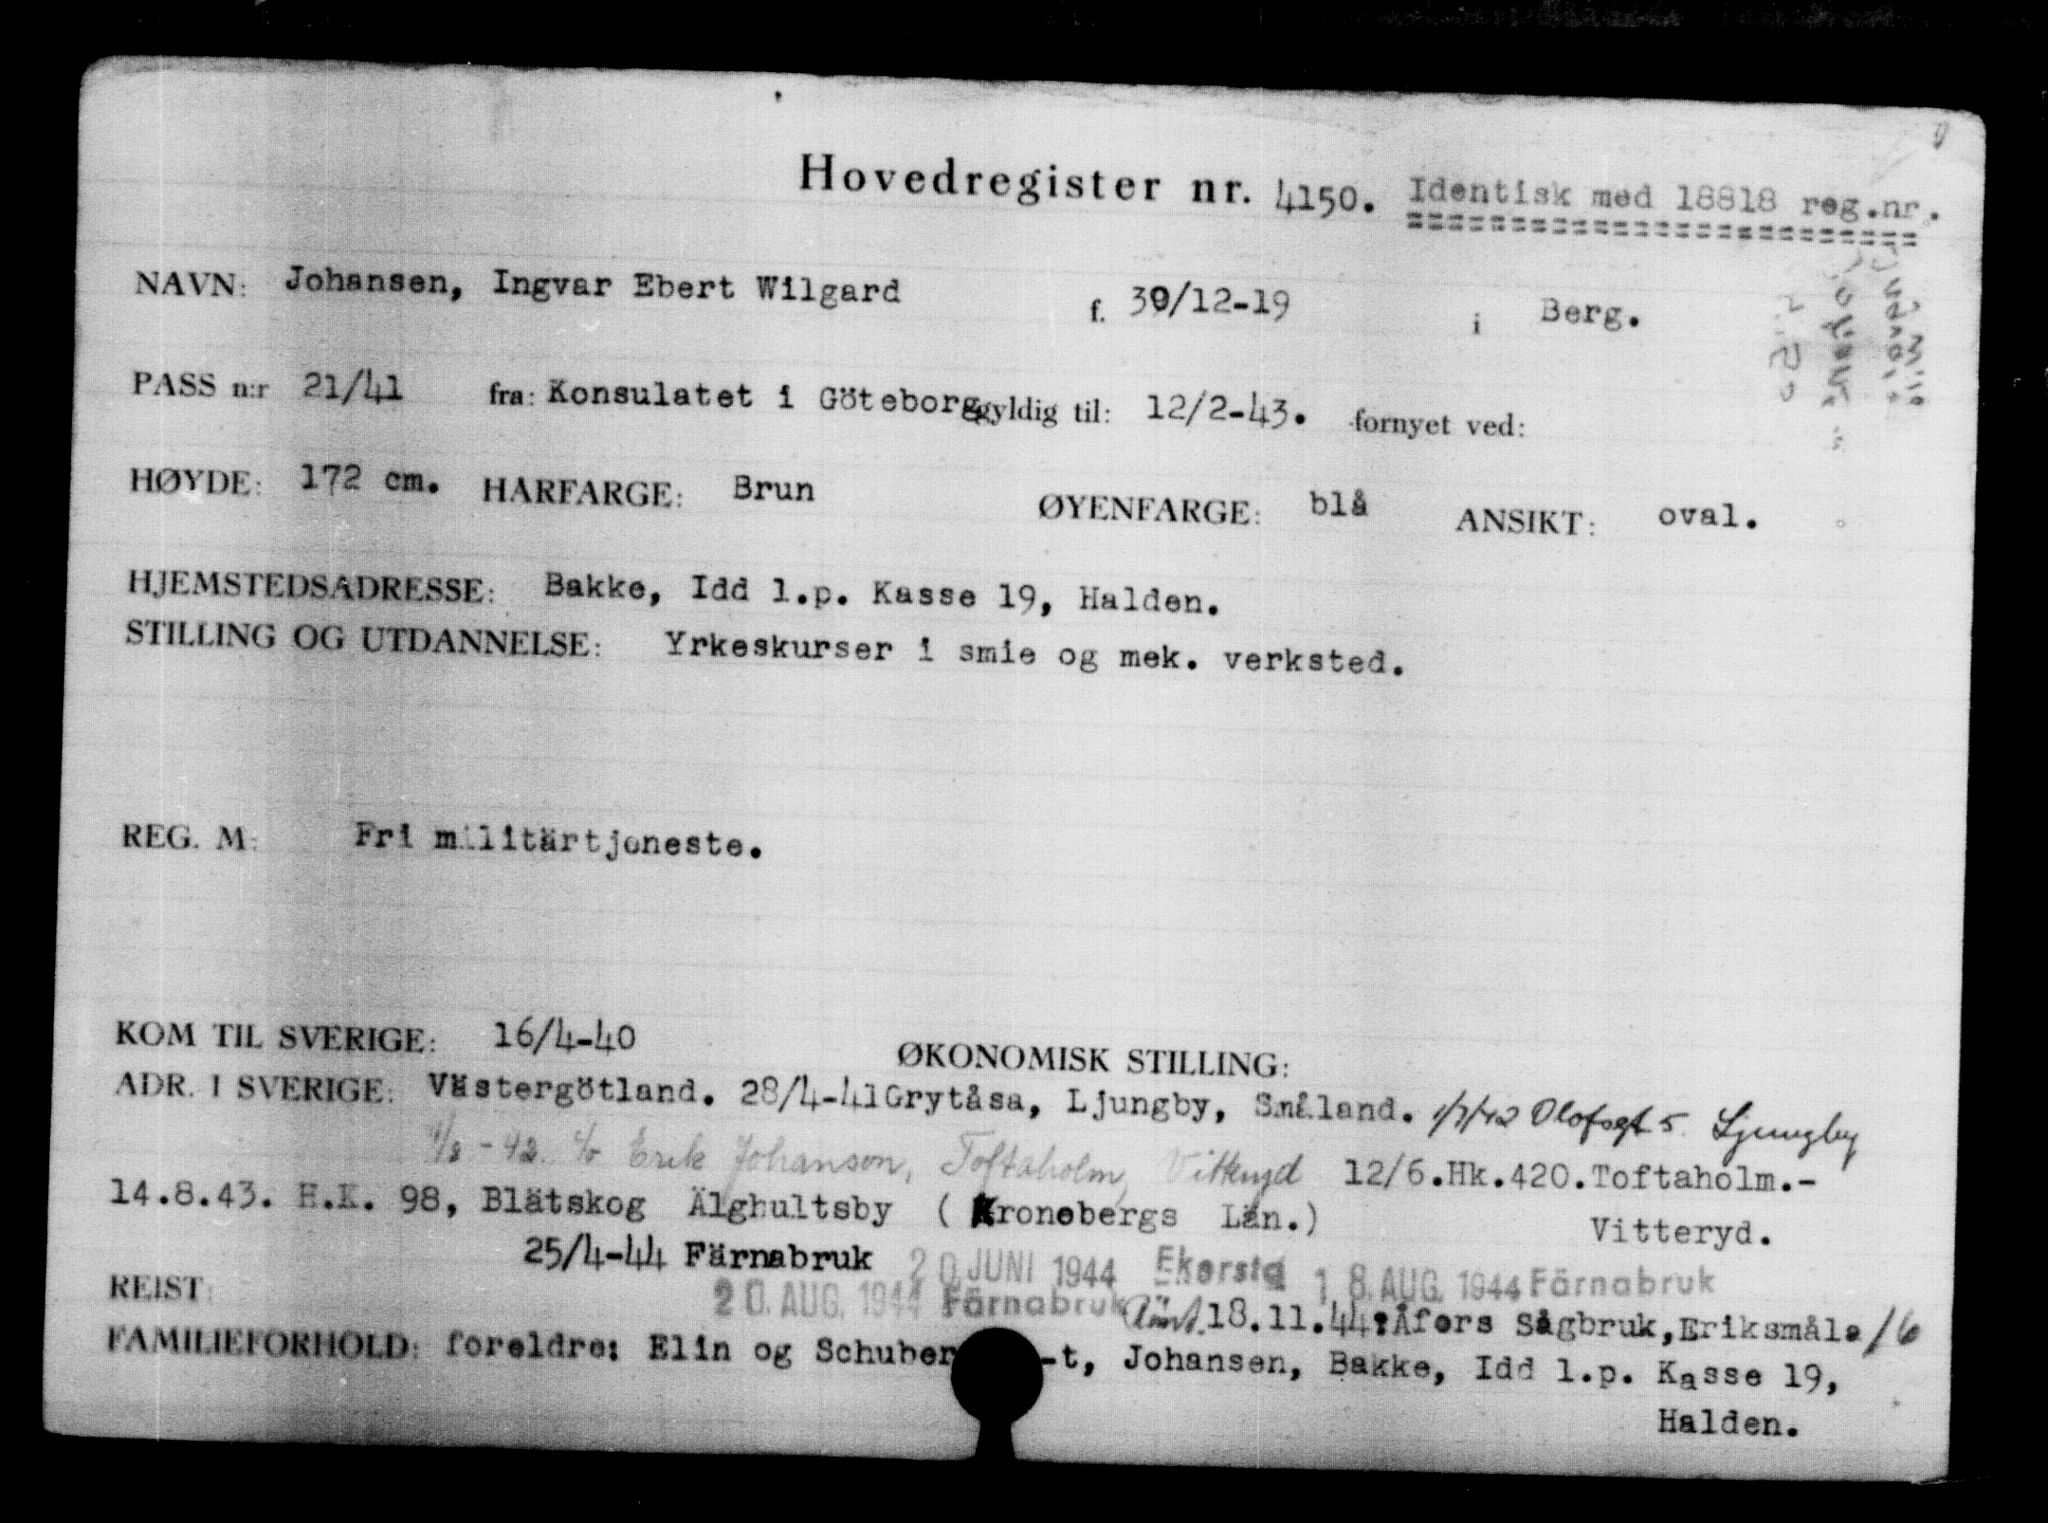 Hovedregister nr. 4150. Identisk med 18818 reg.nr.
NAVN: Johansen, Ingvar Ebert Wilgard f. 30/12-19 i Berg.
PASS n:r 21/41 fra: Konsulatet i Göteborg gyldig til: 12/2-43. fornyet ved:
HØYDE: 172 cm. HARFARGE: Brun ØYENFARGE: blå ANSIKT: oval.
HJEMSTEDSADRESSE: Bakke, Idd l.p. Kasse 19, Halden.
STILLING OG UTDANNELSE: Yrkeskurser i smie og mek. verksted.
REG. M: Fri militärtjeneste.
KOM TIL SVERIGE: 16/4-40 ØKONOMISK STILLING:
ADR. I SVERIGE: Västergötland. 28/4-41 Grytåsa, Ljungby, Småland. 1/7/42 Olofsgt 5. Ljungby
1/8 - 42. c/o Erik Johanson, Toftaholm, Vitteryd 12/6.Hk.420.Toftaholm.-
14.8.43. H.K. 98, Blätskog Älghultsby ( Kronobergs Län.) Vitteryd.
25/4-44 Färnabruk 20 JUNI 1944 Ekorsta 18. AUG. 1944 Färnabruk
REIST: 20. AUG. 1944 Färnabruk 18.11.44: Åfors Sågbruk, Eriksmåla /6
FAMILIEFORHOLD: foreldre: Elin og Schuber -t, Johansen, Bakke, Idd l.p. Kasse 19,
Halden.